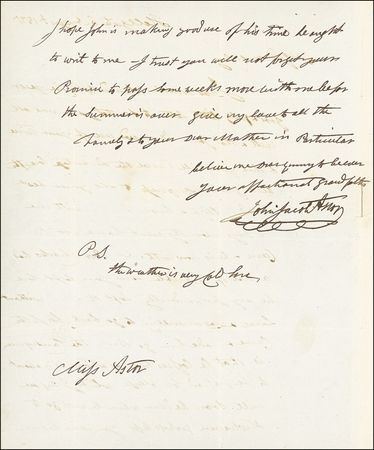 I hope John is making good use of his time he ought
to writ to me - I trust you will not forget your
Promise to pass some weeks more with me befor
the Summer is over give my love to all the
Family & to your Dear Mother in Particular
believe me Dear to be ever
your affectionat grand father
John Jacob Astor
P S.
the weather is very Cold here
Miss Astor